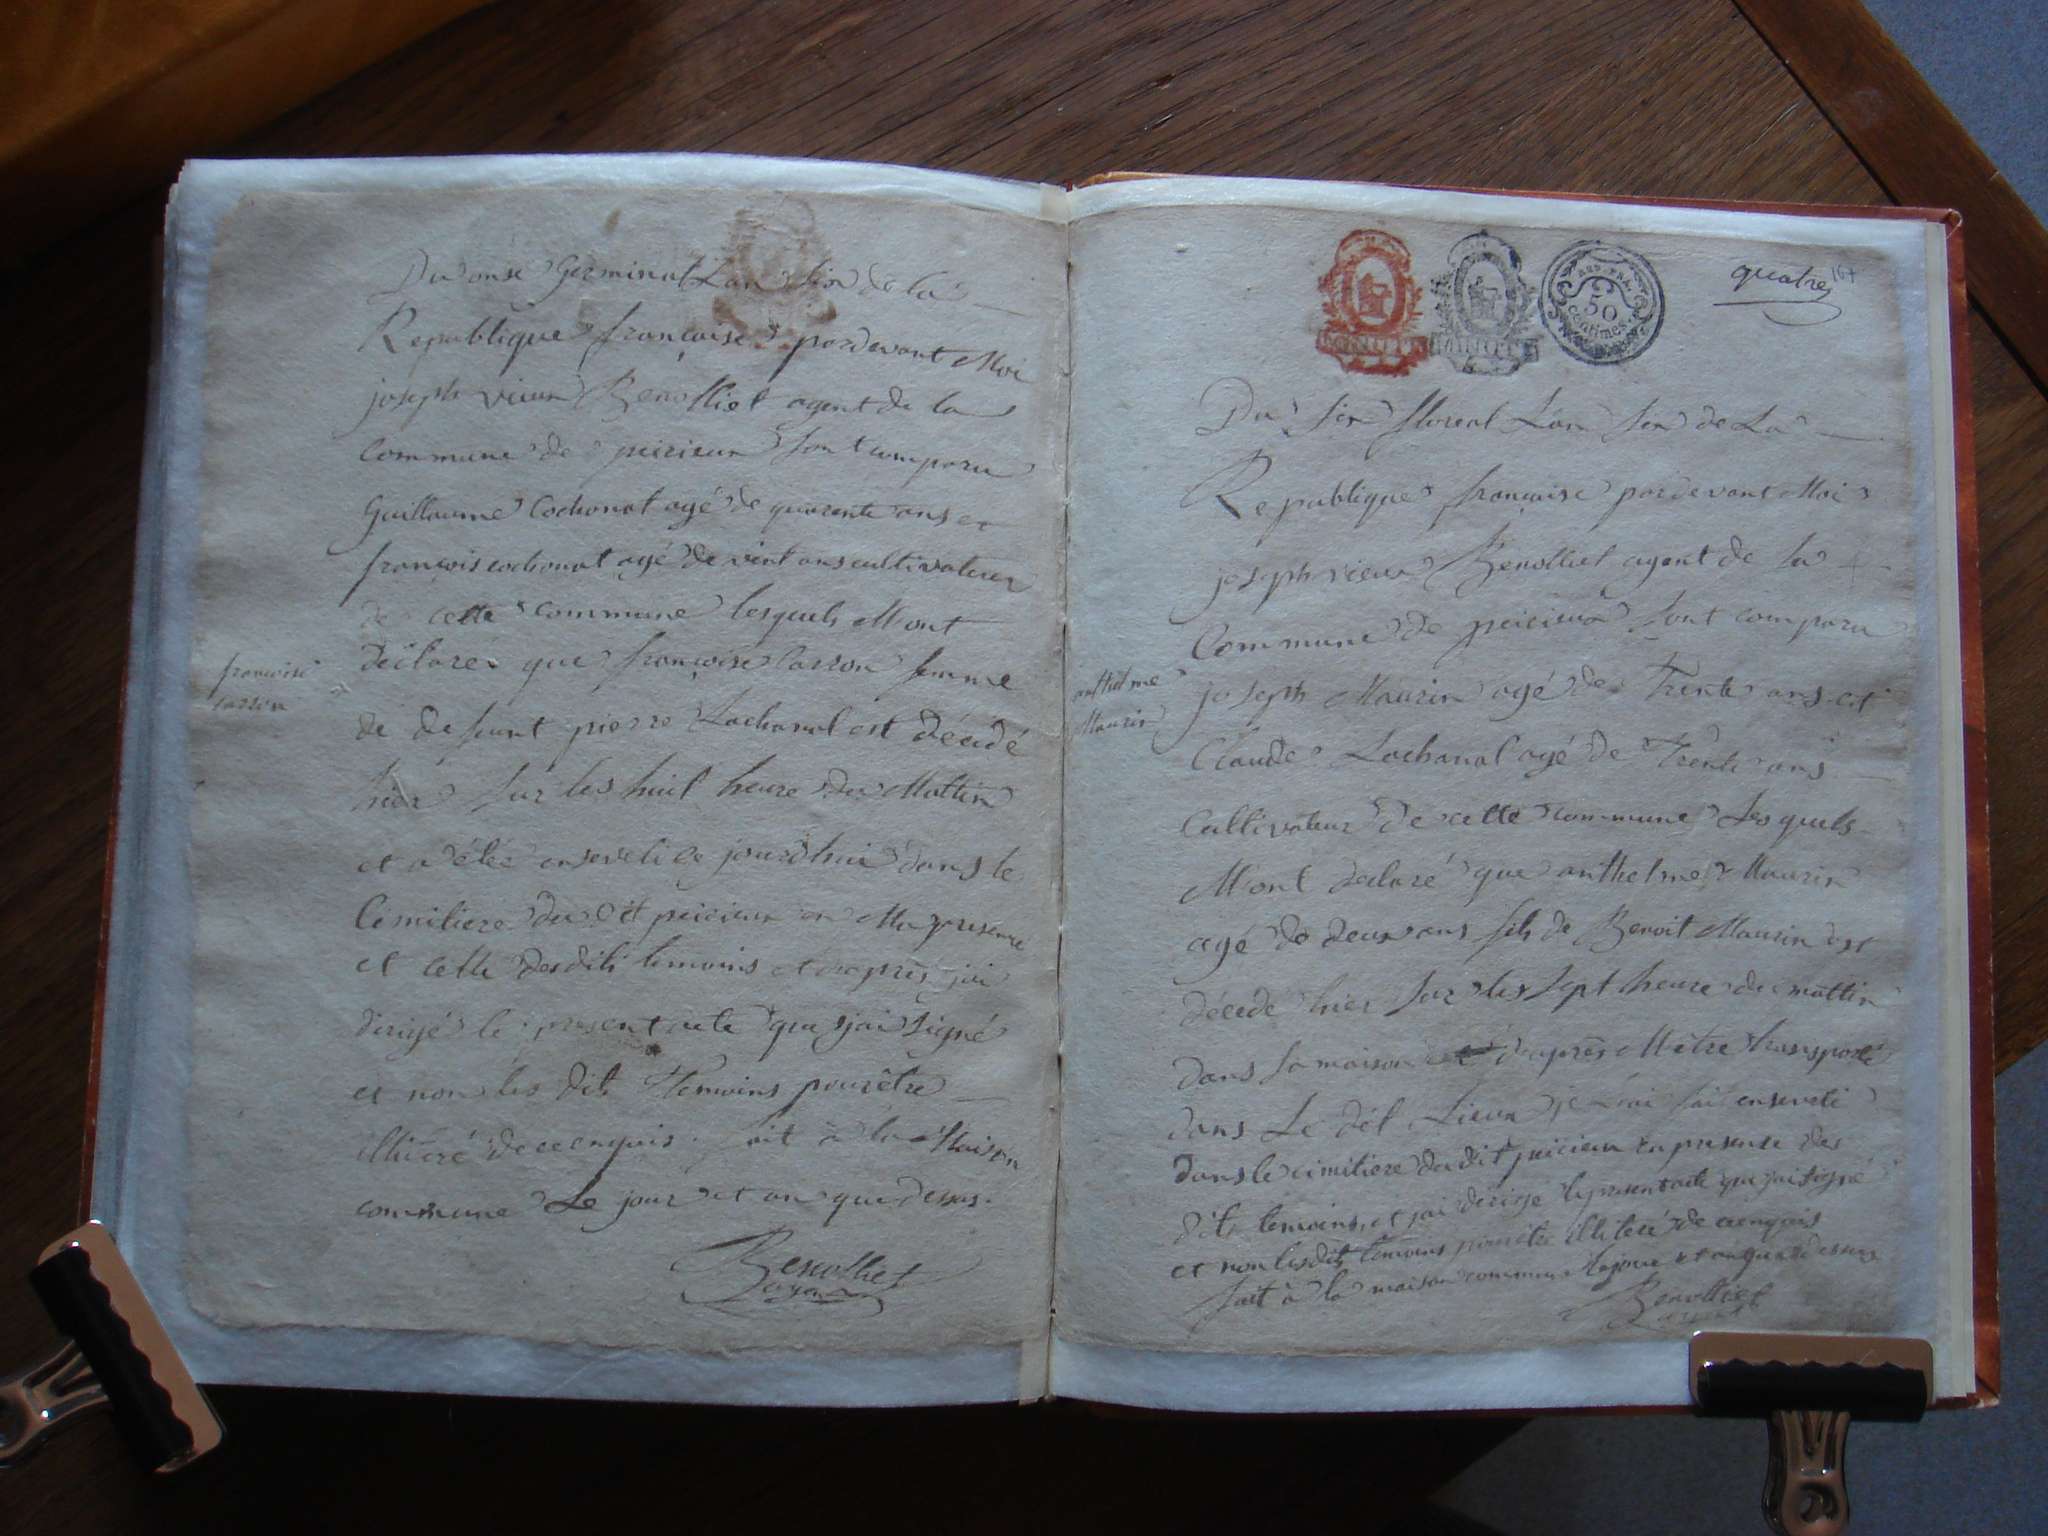 Du onse Germinal Lan six de la
Republique françoise pardevant Moi
joseph vieux Benolliet agent de la
commune de peirieux sont comparu
Guillaume Cochonat agé de quarente ans et
françois cochonat agé de vint ans cultivateur
de cette commune lesquels Mont
déclaré que françoise Carron femme
de defeunt pierre Cochonat est décédé
hier sur les huit heure du Mattin
et a étée enseveli ce jourdhui dans le
Cimitiere du dit peirieux en Ma presence
et celle desdits temoins et daprès jai
dirigé le present acte que jai signé
et non les dits Temoins pour être
illiteré de ce enquis. fait à la Maison
commune Le jour et an que dessus.
Benolliet
françoise
carron
REP. FRA.
50
centimes.
quatre
167
Du six floreal Lan six de La
Republique françoise pardevant Moi
joseph vieux Benolliet agent de la
Commune de peirieux sont comparu
joseph Maurin agé de Trente ans et
Claude Cochonat agé de Trente ans
Cultivateur de cette commune Lesquels
M'ont déclaré que anthelme Maurin
agé de deux ans fils de Benoit Maurin est
décédé hier sur les sept heure du mattin
dans sa maison daprès Metre transporté
dans Le dit Lieux je lai fait enseveli
dans le cimitiere du dit peirieux en presence des
dits temoins, et jai dirigé le present acte que jai signé
et non lesdits temoins pour être illiteré de ce enquis
fait à la maison commune le jour et an que dessus
Benolliet
anthelme
Maurin